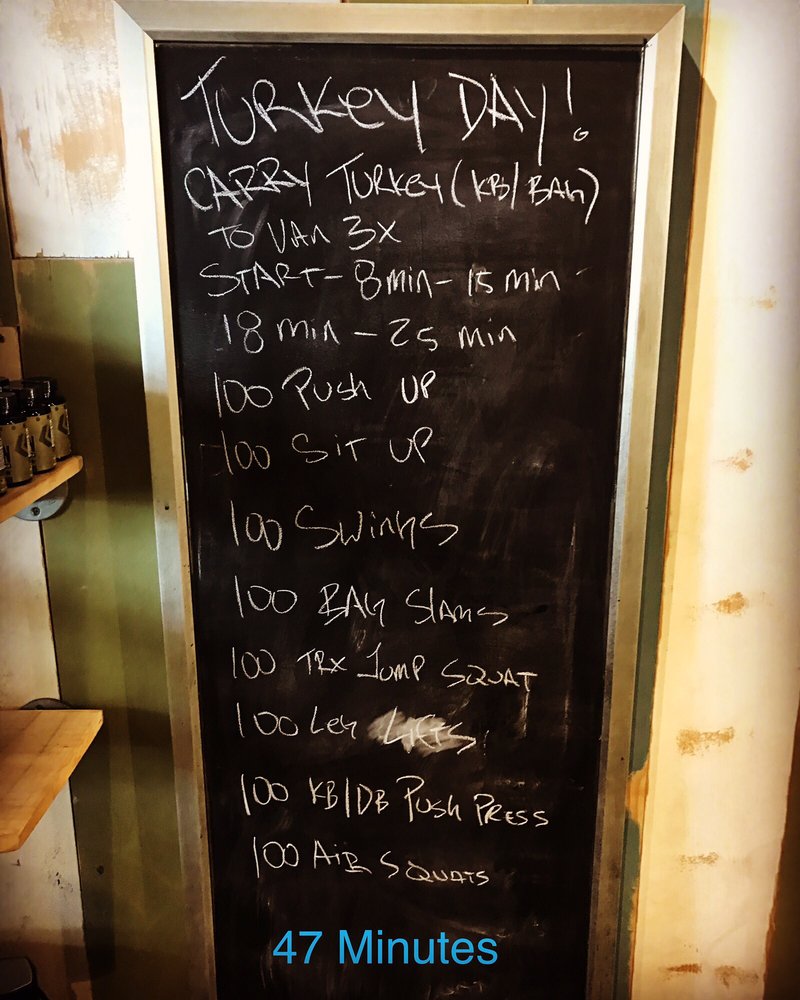 TURKEY DAY!
CARRY TURKEY (KB/BAG)
TO VAN 3X
START - 8 min - 15 min -
18 min - 25 min
100 PUSH UP
100 SIT UP
100 SWINGS
100 BAG SLAMS
100 TRX JUMP SQUAT
100 LEG LIFTS
100 KB/DB PUSH PRESS
100 AIR SQUATS
47 Minutes